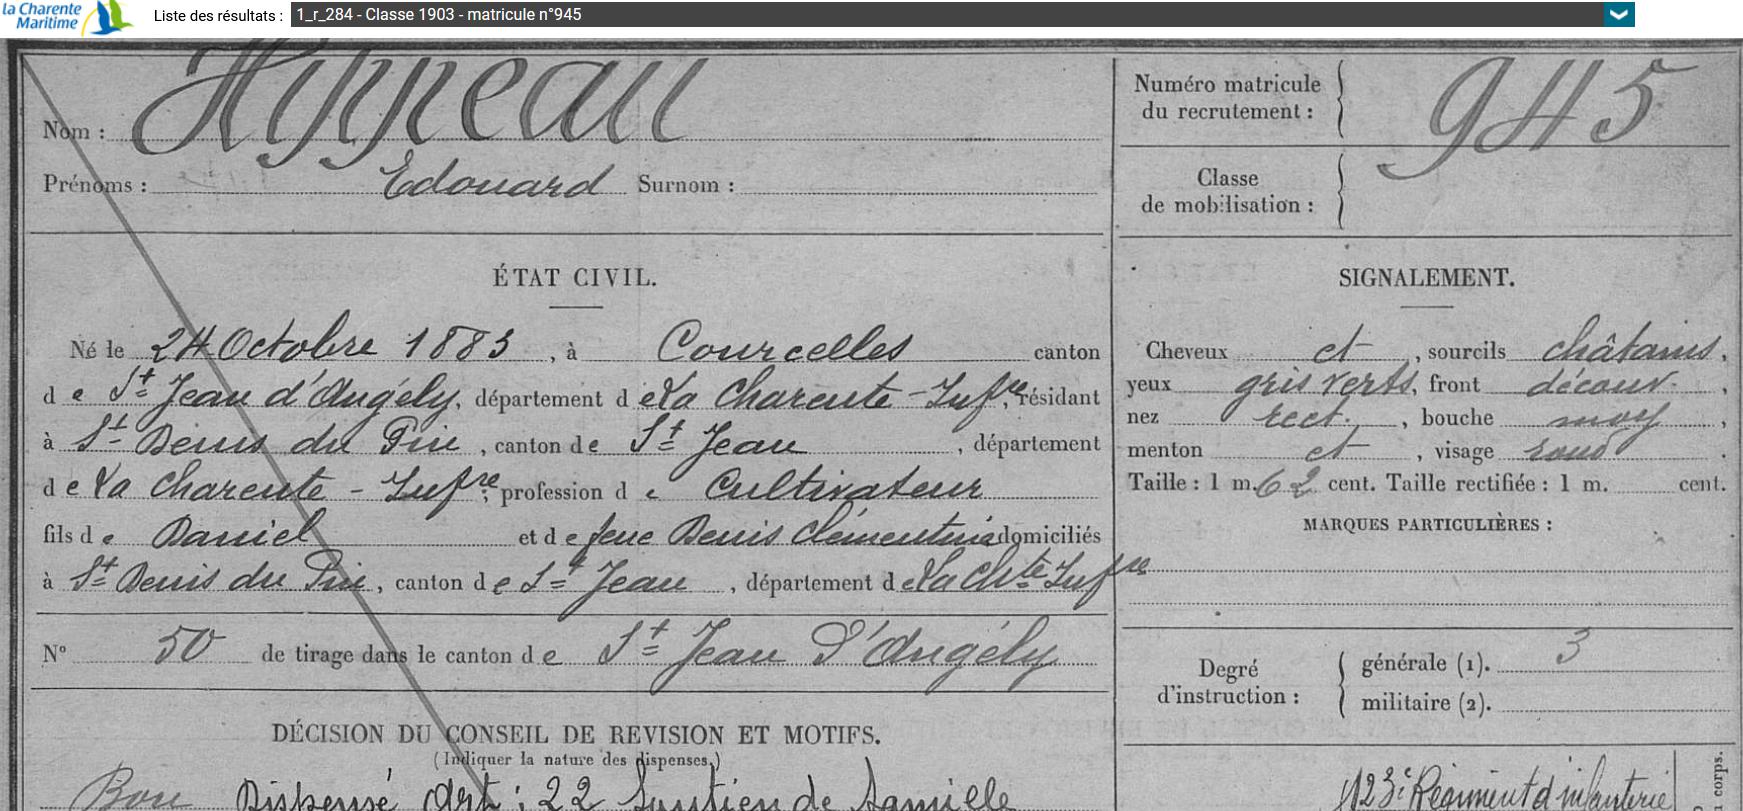 la Charente
Maritime
Liste des résultats : 1_r_284 - Classe 1903 - matricule n°945
Nom : Hyppeau
Prénoms : Edouard Surnom :
Numéro matricule
du recrutement : 945
Classe
de mobilisation :
ÉTAT CIVIL.
Né le 24 Octobre 1883, à Courcelles canton
de St Jean d'Angély, département de La Charente-Infre, résidant
à St Denis du Pin, canton de St Jean, département
de La Charente-Infre, profession de Cultivateur
fils de Daniel et de feue Denis Clémentine domiciliés
à St Denis du Pin, canton de St Jean, département de La Chte Infre
N° 50 de tirage dans le canton de St Jean D'Angély
DÉCISION DU CONSEIL DE REVISION ET MOTIFS.
(Indiquer la nature des dispenses.)
Bon Dispensé Art: 22 Soutien de famille
SIGNALEMENT.
Cheveux et, sourcils châtains,
yeux gris verts, front découv.,
nez rect., bouche moy,
menton et, visage rond.
Taille : 1 m. 62 cent. Taille rectifiée : 1 m. cent.
MARQUES PARTICULIÈRES :
Degré
d'instruction :
générale (1). 3
militaire (2).
123e Régiment d'infanterie
corps.